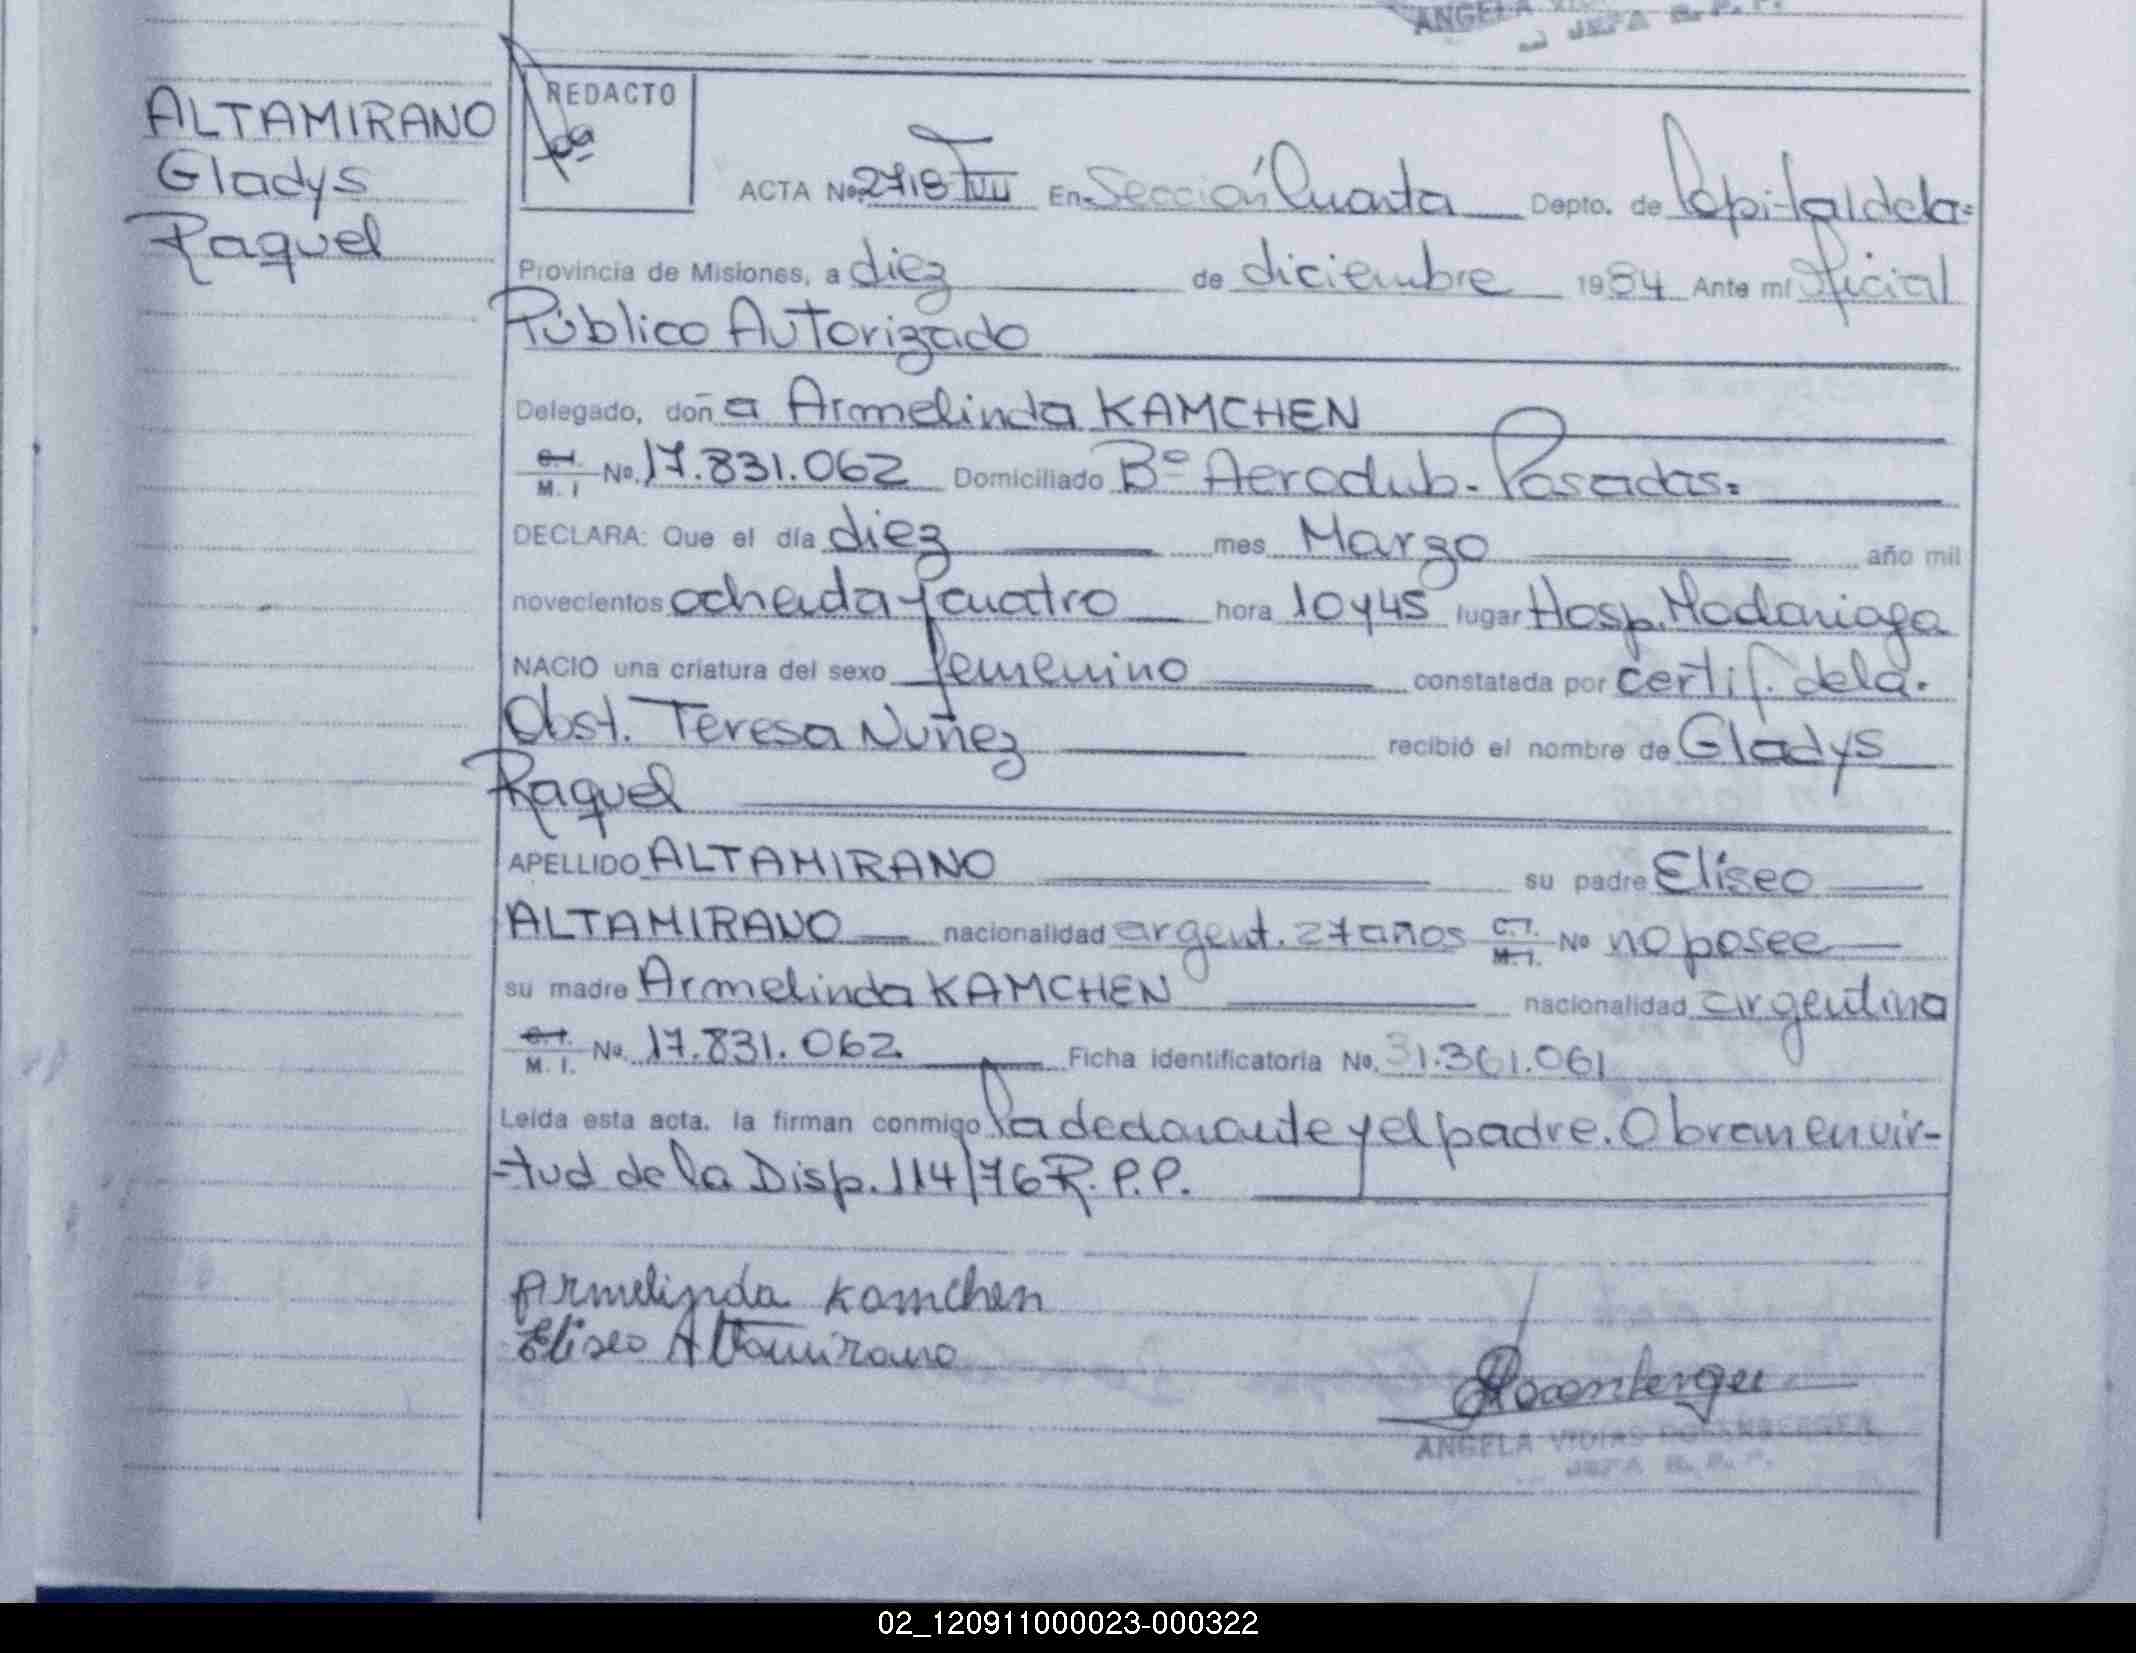 ANGELA
JEFA R. P. P.
ALTAMIRANO
Gladys
Raquel
REDACTO
ACTA No. 2718 T VIII En Sección Cuarta Depto. de Capital de la
Provincia de Misiones, a diez de diciembre 1984 Ante mí Oficial
Público Autorizado
Delegado, doña Armelinda KAMCHEN
C.I. M. I No. 17.831.062 Domiciliado Bº Aeroclub. Posadas.
DECLARA: Que el día diez mes Marzo año mil
novecientos ochenta y cuatro hora 10 y 45 lugar Hosp. Madariaga
NACIO una criatura del sexo femenino constatada por certif. de la.
Obst. Teresa Nuñez recibió el nombre de Gladys
Raquel
APELLIDO ALTAMIRANO su padre Eliseo
ALTAMIRANO nacionalidad argent. 27 años C.I. M.I. No no posee
su madre Armelinda KAMCHEN nacionalidad argentina
C.I. M. I. No. 17.831.062 Ficha identificatoria No. 31.361.061
Leída esta acta, la firman conmigo la declarante y el padre. Obran en vir-
-tud de la Disp. 114/76 R.P.P.
Armelinda Kamchen
Eliseo Altamirano
Rosenberger
ANGELA VIDIAS ROSENBERGER
JEFA R. P. P.
02_120911000023-000322